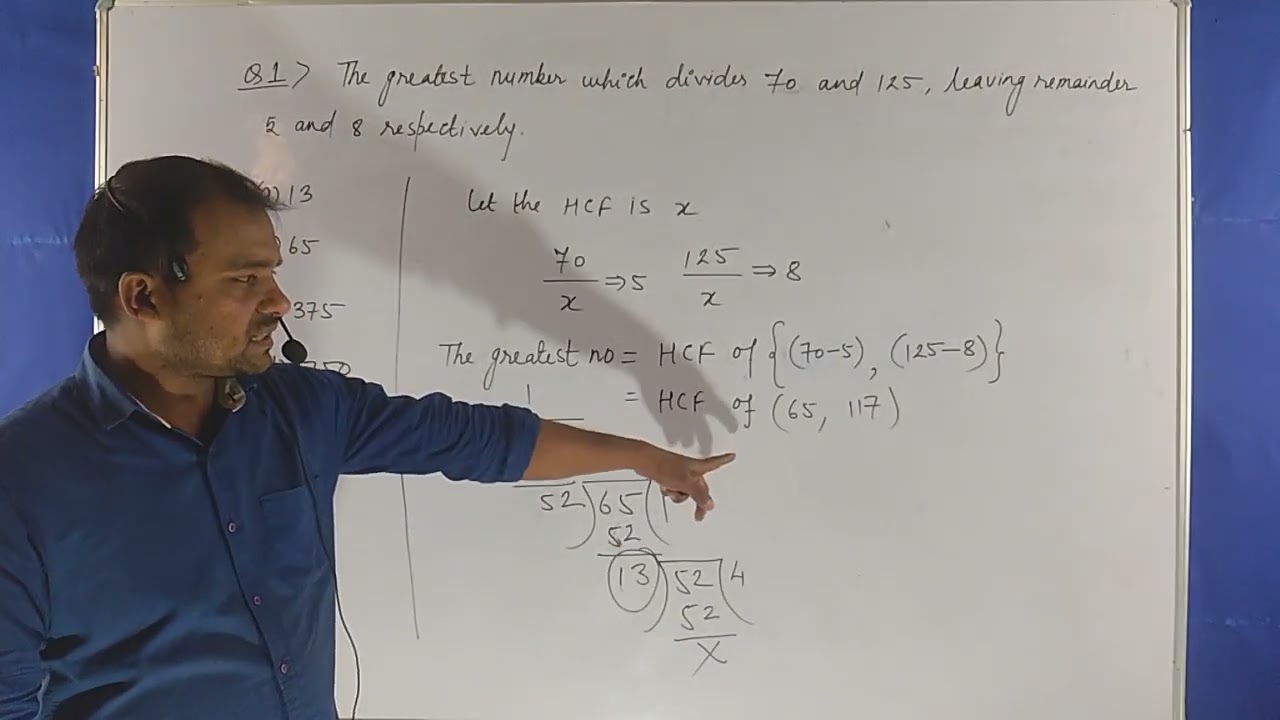 Q1> The greatest number which divides 70 and 125, leaving remainder
5 and 8 respectively.
13
65
375
Let the HCF is x
70/x ⇒ 5 125/x ⇒ 8
The greatest no = HCF of {(70-5), (125-8)}
= HCF of (65, 117)
1
52)65(1
52
13)52(4
52
x